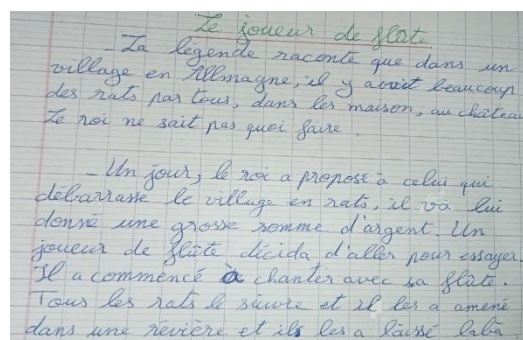 Le joueur de flûte
_ La légende raconte que dans un
village en Allmagne, il y avait beaucoup
des rats par tous, dans les maison, au château
Le roi ne sait pas quoi faire.
_ Un jour, le roi a proposé à celui qui
débarrasse le village en rats, il va lui
donné une grosse somme d'argent. Un
joueur de flûte décida d'aller pour essayer.
Il a commencé à chanter avec sa flûte.
Tous les rats le suivre et il les a amené
dans une révière et ils les a laissé laba